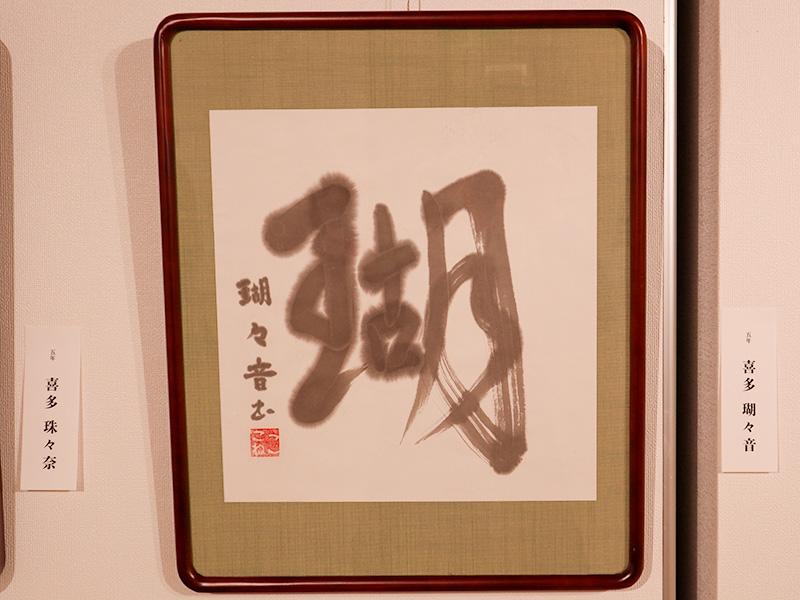 瑚
瑚々音書
五年
喜多 瑚々音
五年
喜多 珠々奈